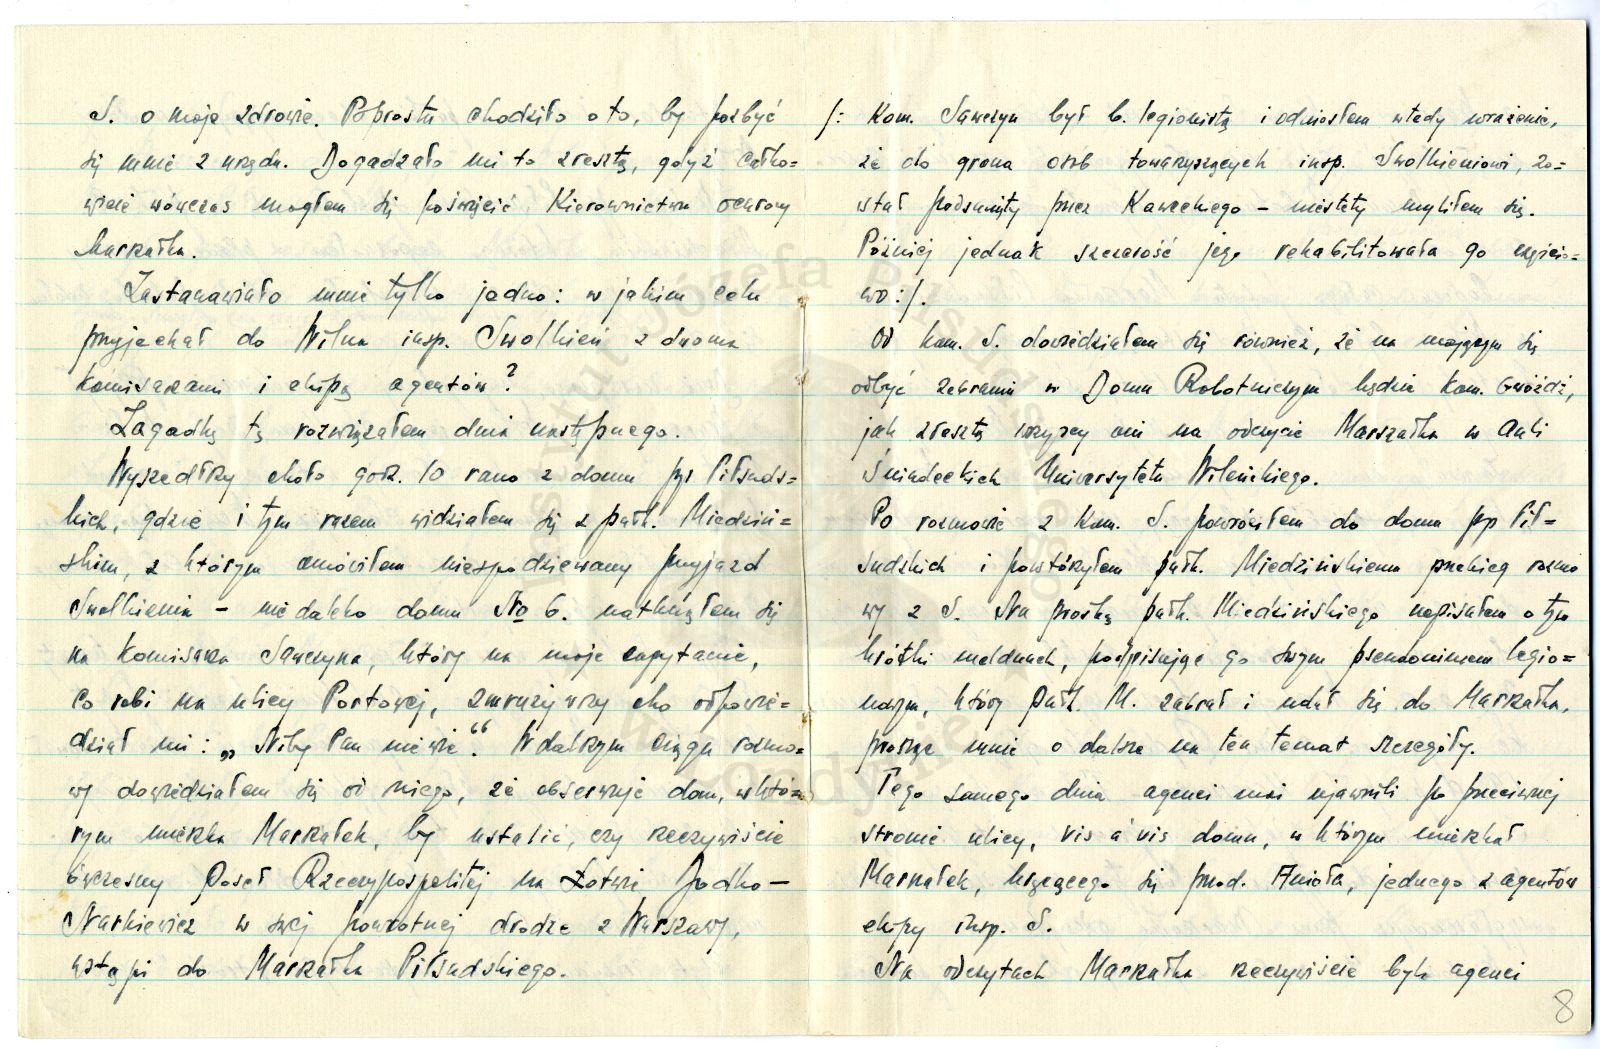 S. o moje zdrowie. Poprostu chodziło o to, by pozbyć
się mnie z urzędu. Dogadzało mi to zresztą, gdyż całko=
wicie wówczas mogłem się poświęcić Kierownictwu ochrony
Marszałka.
Zastanawiało mnie tylko jedno: w jakim celu
przyjechał do Wilna insp. Swolkień z dwoma
komisarzami i ekipą agentów?
Zagadkę tę rozwiązałem dnia następnego.
Wyszedłszy około godz. 10 rano z domu pp Piłsuds=
kich, gdzie i tym razem widziałem się z płk. Miedziń=
skim, z którym omówiłem niespodziewany przyjazd
Swolkienia – niedaleko domu No 6. natknąłem się
na Komisarza Sawczyna, który na moje zapytanie,
co robi na ulicy Portowej, zmrużywszy oko odpowie=
dział mi: „Niby Pan nie wie." W dalszym ciągu rozmo=
wy dowiedziałem się od niego, że obserwuje dom, w któ=
rym mieszka Marszałek, by ustalić, czy rzeczywiście
ówczesny Poseł Rzeczypospolitej na Łotwie Jodko–
Narkiewicz w swej powrotnej drodze z Warszawy,
wstąpi do Marszałka Piłsudskiego.
/: Kom. Sawczyn był b. legionistą i odniosłem wtedy wrażenie,
że do grona osób towarzyszących insp. Swolkieniowi, zo=
stał podsunięty przez Kaweckiego – niestety myliłem się.
Później jednak szczerość jego rehabilitowała go częścio=
wo:/.
Od kom. S. dowiedziałem się również, że na mającym się
odbyć zebraniu w Domu Robotniczym będzie kom. Gwóźdź,
jak zresztą wszyscy oni na odczycie Marszałka w Auli
Śniadeckich Uniwersytetu Wileńskiego.
Po rozmowie z kom. S. powróciłem do domu pp Pił=
sudskich i powtórzyłem płk. Miedzińskiemu przebieg rozmo
wy z S. Na prośbę płk. Miedzińskiego napisałem o tym
krótki meldunek, podpisując go swym pseudonimem legio=
nowym, który płk. M. zabrał i udał się do Marszałka,
prosząc mnie o dalsze na ten temat szczegóły.
Tego samego dnia agenci moi ujawnili po przeciwnej
stronie ulicy, vis a vis domu, w którym mieszkał
Marszałek, kręcącego się przod. Anioła, jednego z agentów
ekipy insp. S.
Na odczytach Marszałka rzeczywiście byli agenci
8
Instytut Józefa Piłsudskiego
w Londynie